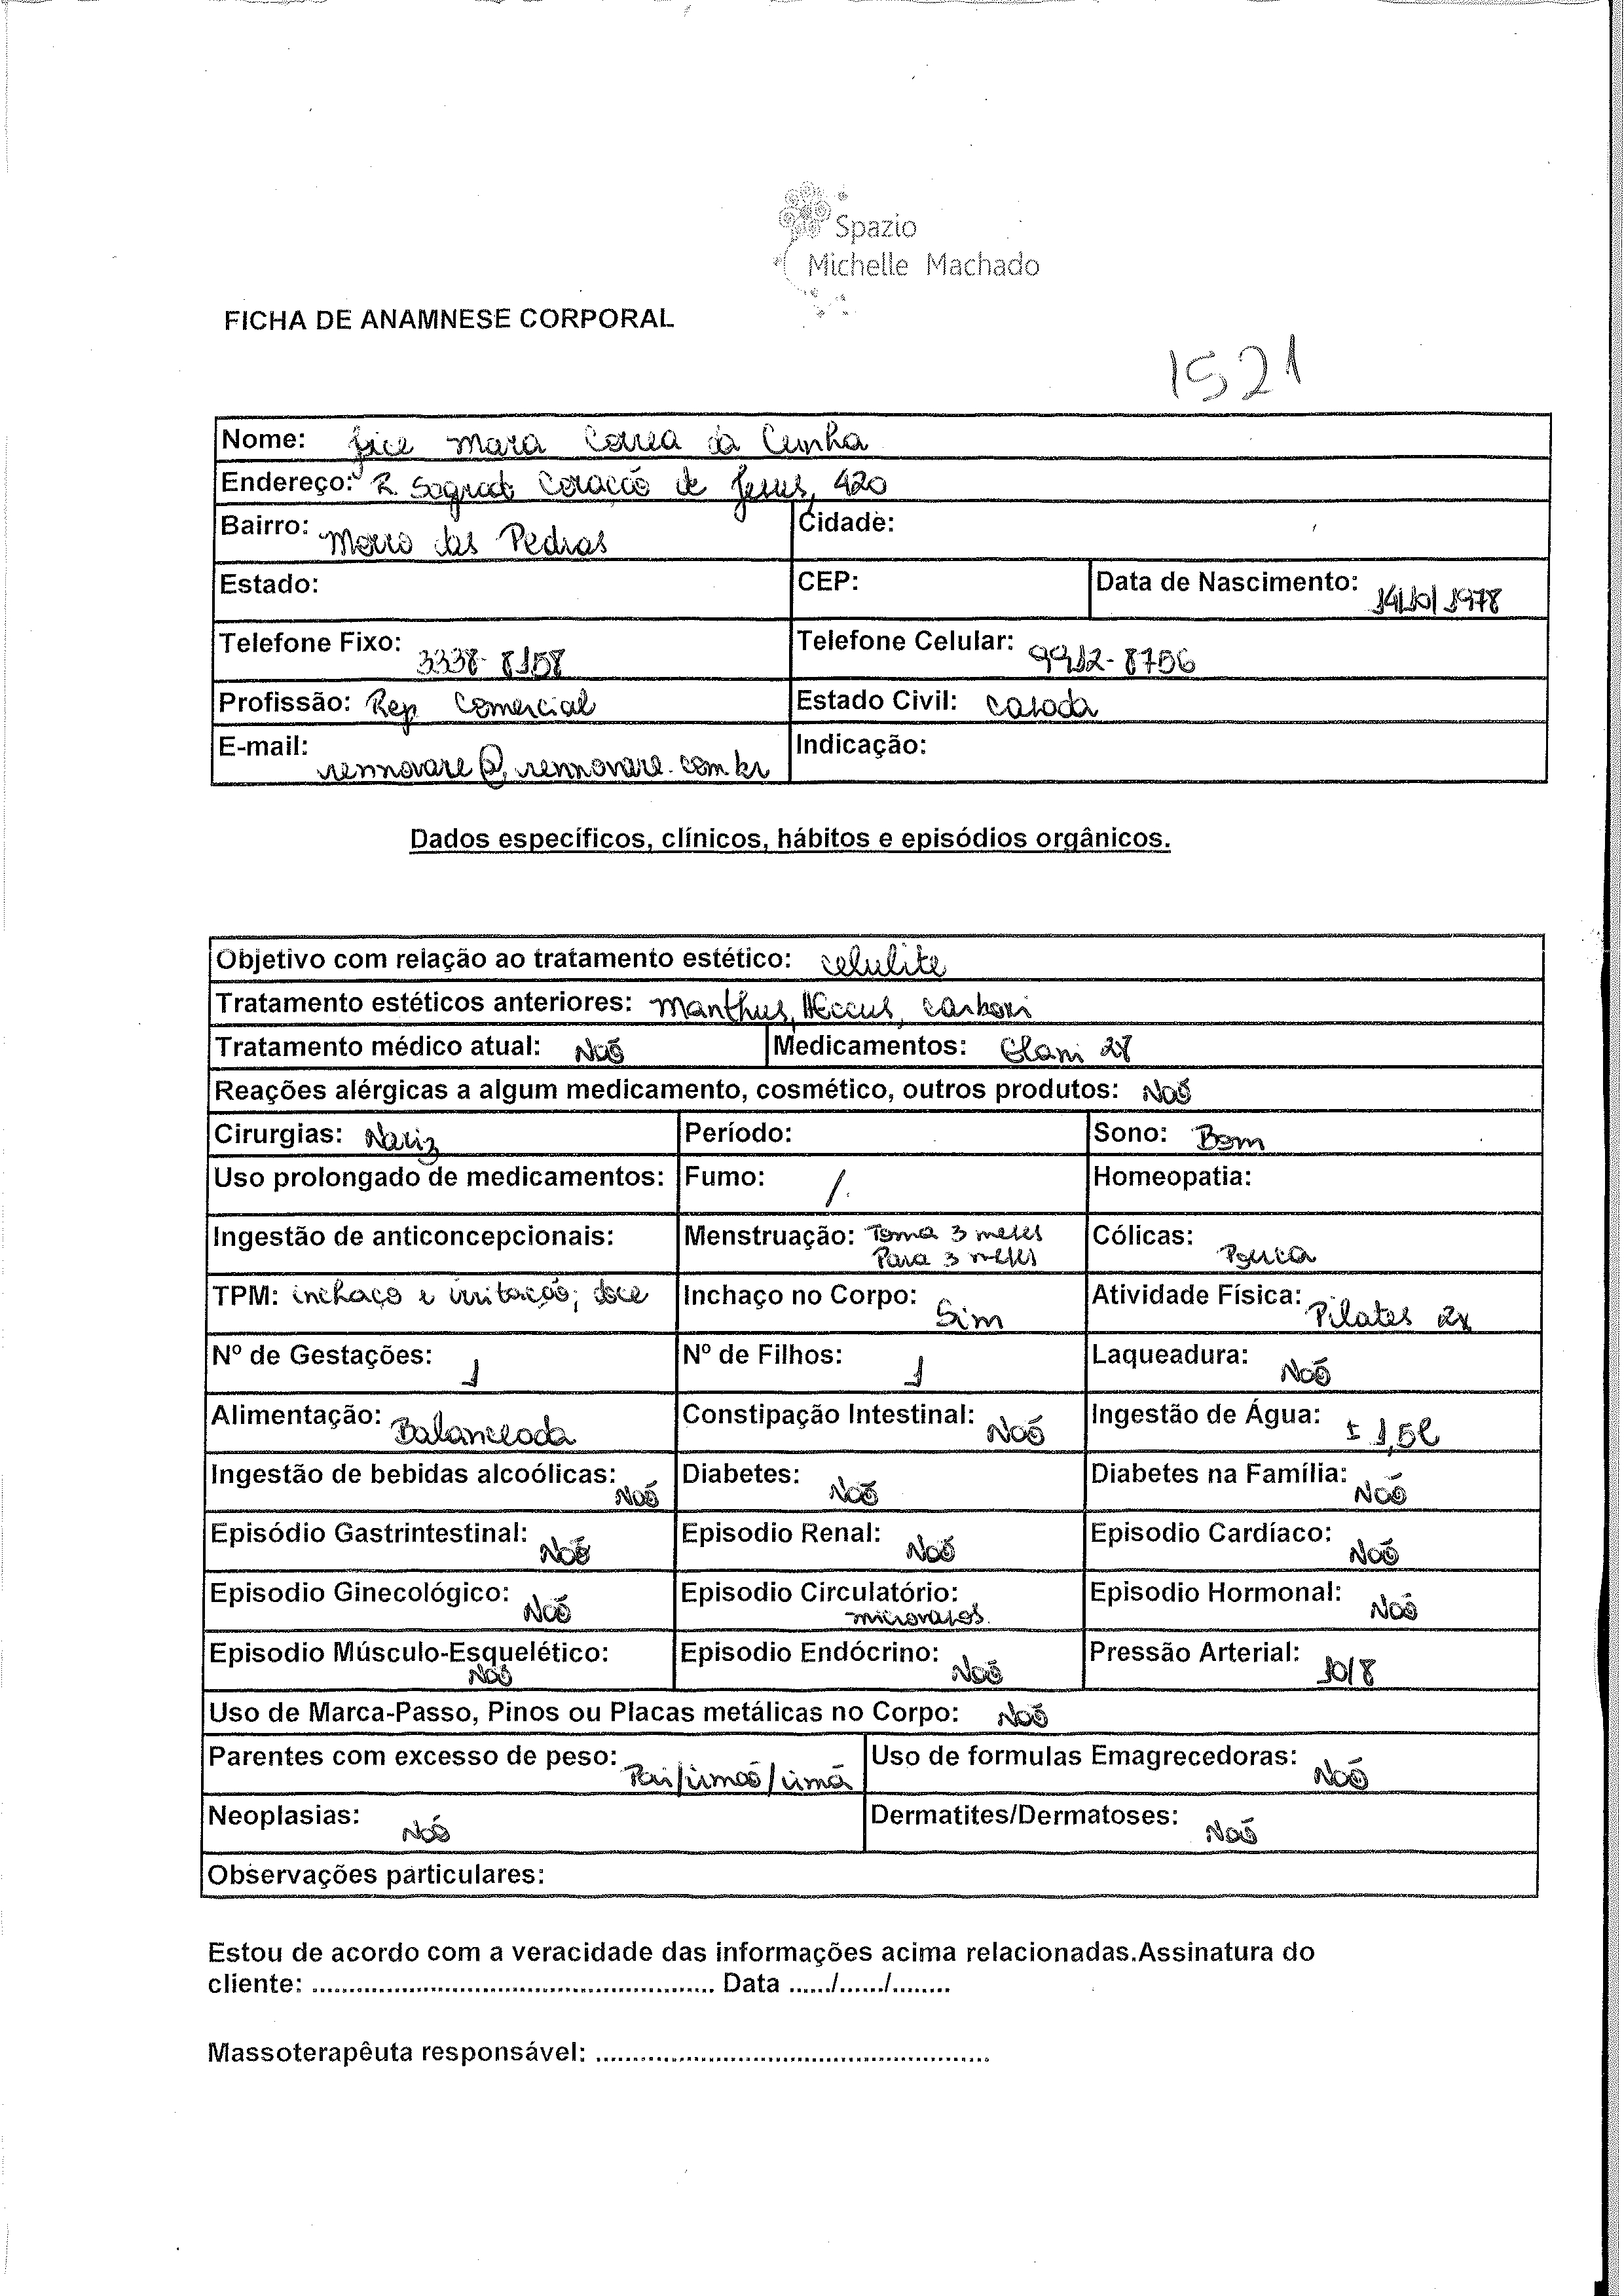 Spazio
Michelle Machado
FICHA DE ANAMNESE CORPORAL
1521
Nome: Jice mara Correa da Cunha
Endereço: R. Sagrado Coração de Jesus, 420
Bairro: Morro das Pedras Cidade:
Estado: CEP: Data de Nascimento: 14/10/1978
Telefone Fixo: 3338-8158 Telefone Celular: 9912-8756
Profissão: Rep Comercial Estado Civil: casada
E-mail: rennovare@rennovare.com.br Indicação:
Dados específicos, clínicos, hábitos e episódios orgânicos.
Objetivo com relação ao tratamento estético: celulite
Tratamento estéticos anteriores: Manthus, Heccus, carboxi
Tratamento médico atual: Não Medicamentos: Elani 28
Reações alérgicas a algum medicamento, cosmético, outros produtos: Não
Cirurgias: Nariz Período: Sono: Bom
Uso prolongado de medicamentos: Fumo: / Homeopatia:
Ingestão de anticoncepcionais: Menstruação: Toma 3 meses Cólicas: Pouca
Para 3 meses
TPM: inchaço e irritação; doce Inchaço no Corpo: Sim Atividade Física: Pilates 2x
Nº de Gestações: 1 Nº de Filhos: 1 Laqueadura: Não
Alimentação: Balanceada Constipação Intestinal: Não Ingestão de Água: ± 1,5l
Ingestão de bebidas alcoólicas: Não Diabetes: Não Diabetes na Família: Não
Episódio Gastrintestinal: Não Episodio Renal: Não Episodio Cardíaco: Não
Episodio Ginecológico: Não Episodio Circulatório: microvasos. Episodio Hormonal: Não
Episodio Músculo-Esquelético: Não Episodio Endócrino: Não Pressão Arterial: 10/8
Uso de Marca-Passo, Pinos ou Placas metálicas no Corpo: Não
Parentes com excesso de peso: Pai/irmão/irmã Uso de formulas Emagrecedoras: Não
Neoplasias: Não Dermatites/Dermatoses: Não
Observações particulares:
Estou de acordo com a veracidade das informações acima relacionadas.Assinatura do
cliente: ...................................................... Data ....../....../........
Massoterapêuta responsável: .....................................................